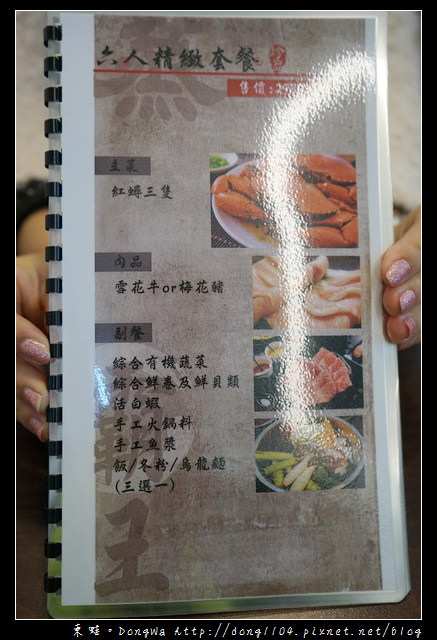 六人精緻套餐
售價:29
主菜
紅蟳三隻
肉品
雪花牛or梅花豬
副餐
綜合有機蔬菜
綜合鮮卷及鮮貝類
活白蝦
手工火鍋料
手工魚漿
飯/冬粉/烏龍麵
(三選一)
東蛙。DongWa http://dong1104.pixnet.net/blog